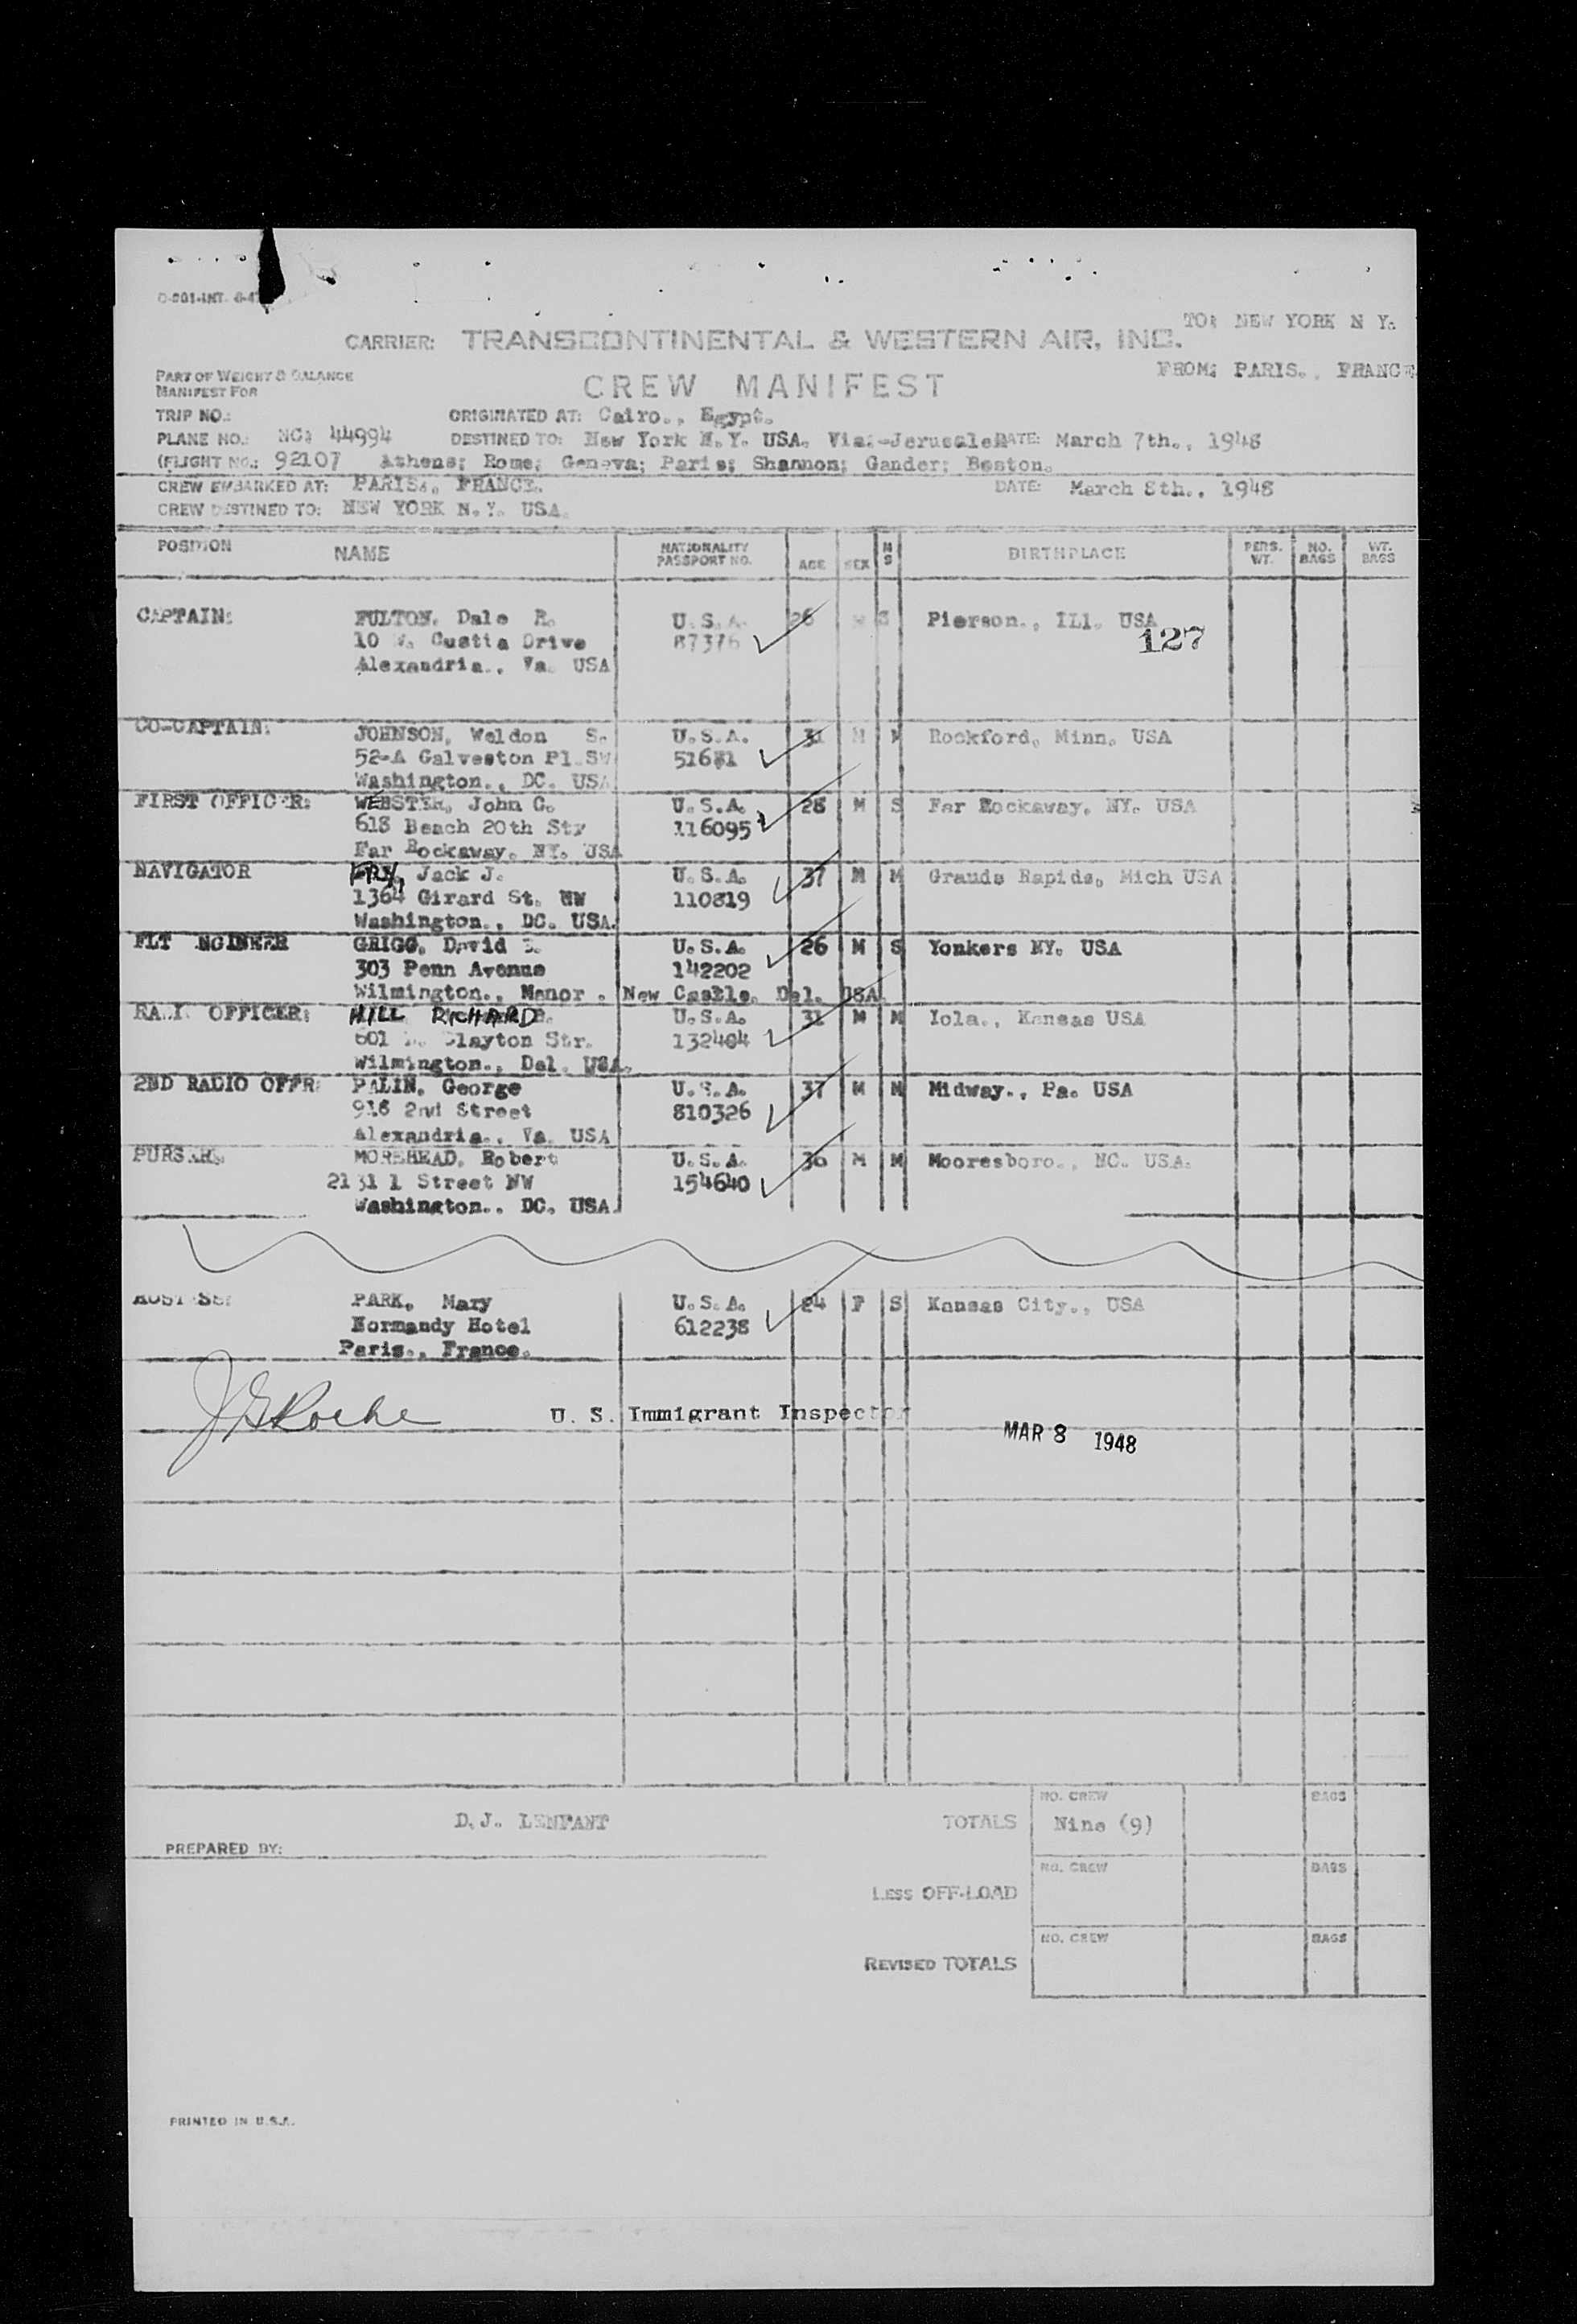 TO: NEW YORK N Y.
CARRIER: TRANSCONTINENTAL & WESTERN AIR, INC.
FROM: PARIS., FRANCE
PART OF WEIGHT & BALANCE
MANIFEST FOR
CREW MANIFEST
TRIP NO.: ORIGINATED AT: Cairo., Egypt.
PLANE NO.: NC: 44994 DESTINED TO: New York N.Y. USA. Via:-Jerusalem DATE: March 7th., 1948
(FLIGHT NO.: 92107 Athens; Rome; Geneva; Paris; Shannon; Gander; Boston.
CREW EMBARKED AT: PARIS., FRANCE. DATE: March 8th., 1948
CREW DESTINED TO: NEW YORK N.Y. USA.
POSITION NAME NATIONALITY PASSPORT NO. AGE SEX M S BIRTHPLACE PERS. WT. NO. BAGS WT. BAGS
CAPTAIN: FULTON, Dale R. U.S.A. 26 M S Pierson., Ill. USA
10 W. Custia Drive 87376
127
Alexandria., Va. USA
CO-CAPTAIN: JOHNSON, Weldon S. U.S.A. 31 M M Rockford, Minn. USA
52-A Galveston Pl.SW 51681
Washington., DC. USA
FIRST OFFICER: WEBSTER, John C. U.S.A. 28 M S Far Rockaway, NY. USA
618 Beach 20th Str 116095
Far Rockaway. NY. USA
NAVIGATOR FRY, Jack J. U.S.A. 37 M M Grauds Rapids, Mich USA
1364 Girard St. NW 110819
Washington., DC. USA.
FLT NGINEER GRIGG, David U.S.A. 26 M S Yonkers NY. USA
303 Penn Avenue 142202
Wilmington., Manor . New Castle. Del. USA.
OFFICER: HILL RICHARD U.S.A. 31 M M Iola., Kansas USA
601 Clayton Str. 132404
Wilmington., Del. USA.
2ND RADIO OFFR: PALIN, George U.S.A. 37 M M Midway., Pa. USA
918 2nd Street 810326
Alexandria., Va. USA
PURSER: MOREHEAD, Robert U.S.A. 36 M M Mooresboro., NC. USA.
2131 1 Street NW 154640
Washington., DC. USA.
PARK, Mary U.S.A. 24 F S Kansas City., USA
Normandy Hotel 612238
Paris., France.
U. S. Immigrant Inspector
MAR 8 1948
NO. CREW BAGS
D.J. LENFANT TOTALS Nine (9)
PREPARED BY:
NO. CREW BAGS
LESS OFF-LOAD
NO. CREW BAGS
REVISED TOTALS
PRINTED IN U.S.A.